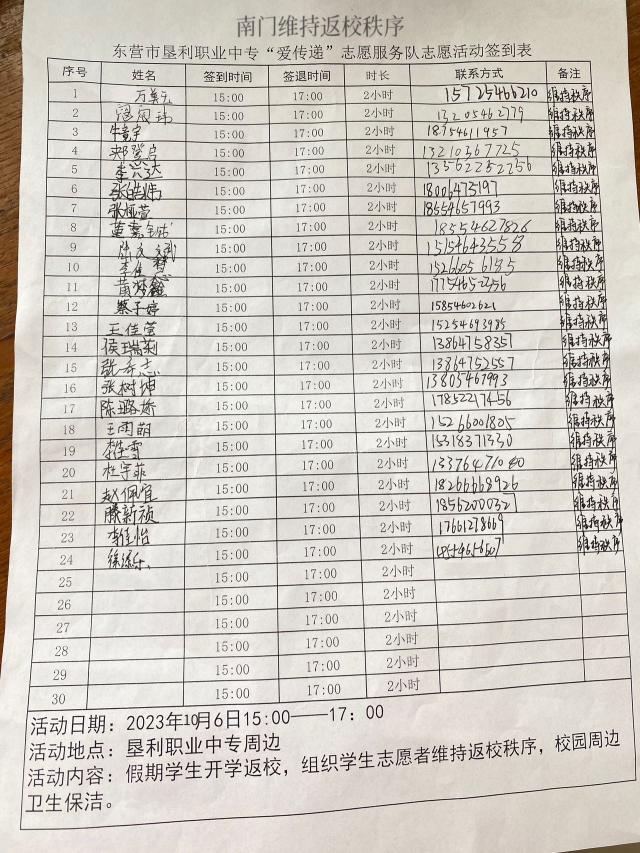 南门维持返校秩序
东营市垦利职业中专“爱传递”志愿服务队志愿活动签到表
序号 姓名 签到时间 签退时间 时长 联系方式 备注
1 15:00 17:00 2小时 15725466210 维持秩序
2 15:00 17:00 2小时 13205462779 维持秩序
3 15:00 17:00 2小时 18954611957 维持秩序
4 15:00 17:00 2小时 13210367725 维持秩序
5 15:00 17:00 2小时 13562252256 维持秩序
6 张皓炜 15:00 17:00 2小时 18006475197 维持秩序
7 张恒萱 15:00 17:00 2小时 18554657993 维持秩序
8 15:00 17:00 2小时 18554627826 维持秩序
9 15:00 17:00 2小时 15154643558 维持秩序
10 15:00 17:00 2小时 维持秩序
11 15:00 17:00 2小时 维持秩序
12 綦子婷 15:00 17:00 2小时 15854602621 维持秩序
13 王佳萱 15:00 17:00 2小时 15254693985 维持秩序
14 侯瑞莉 15:00 17:00 2小时 13864758357 维持秩序
15 张希志 15:00 17:00 2小时 13864752557 维持秩序
16 张树坤 15:00 17:00 2小时 13805467993 维持秩序
17 陈璐娇 15:00 17:00 2小时 17852217456 维持秩序
18 王雨萌 15:00 17:00 2小时 15266001805 维持秩序
19 15:00 17:00 2小时 15318371330 维持秩序
20 杜宇菲 15:00 17:00 2小时 13376471080 维持秩序
21 赵佩宜 15:00 17:00 2小时 18266668926 维持秩序
22 滕新颖 15:00 17:00 2小时 18562000327 维持秩序
23 李佳怡 15:00 17:00 2小时 17661278669 维持秩序
24 15:00 17:00 2小时 维持秩序
25 15:00 17:00 2小时
26 15:00 17:00 2小时
27 15:00 17:00 2小时
28 15:00 17:00 2小时
29 15:00 17:00 2小时
30 15:00 17:00 2小时
活动日期：2023年10月6日15:00——17：00
活动地点：垦利职业中专周边
活动内容：假期学生开学返校，组织学生志愿者维持返校秩序，校园周边
卫生保洁。